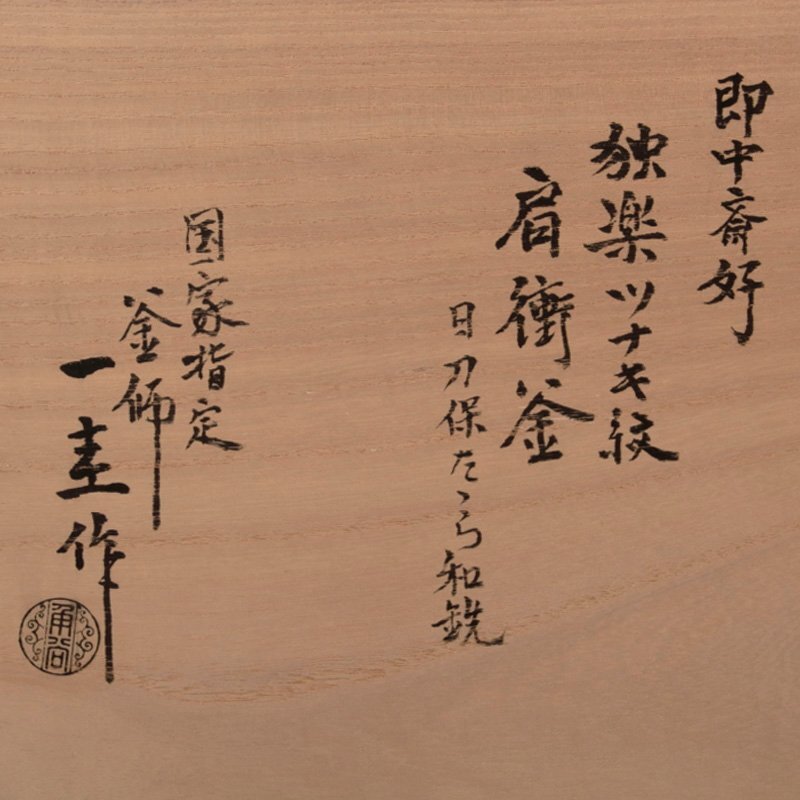 即中斎好
独楽ツナキ紋
肩衝釜
日刀保たゝら和銑
国家指定
釜師
一圭作
角谷